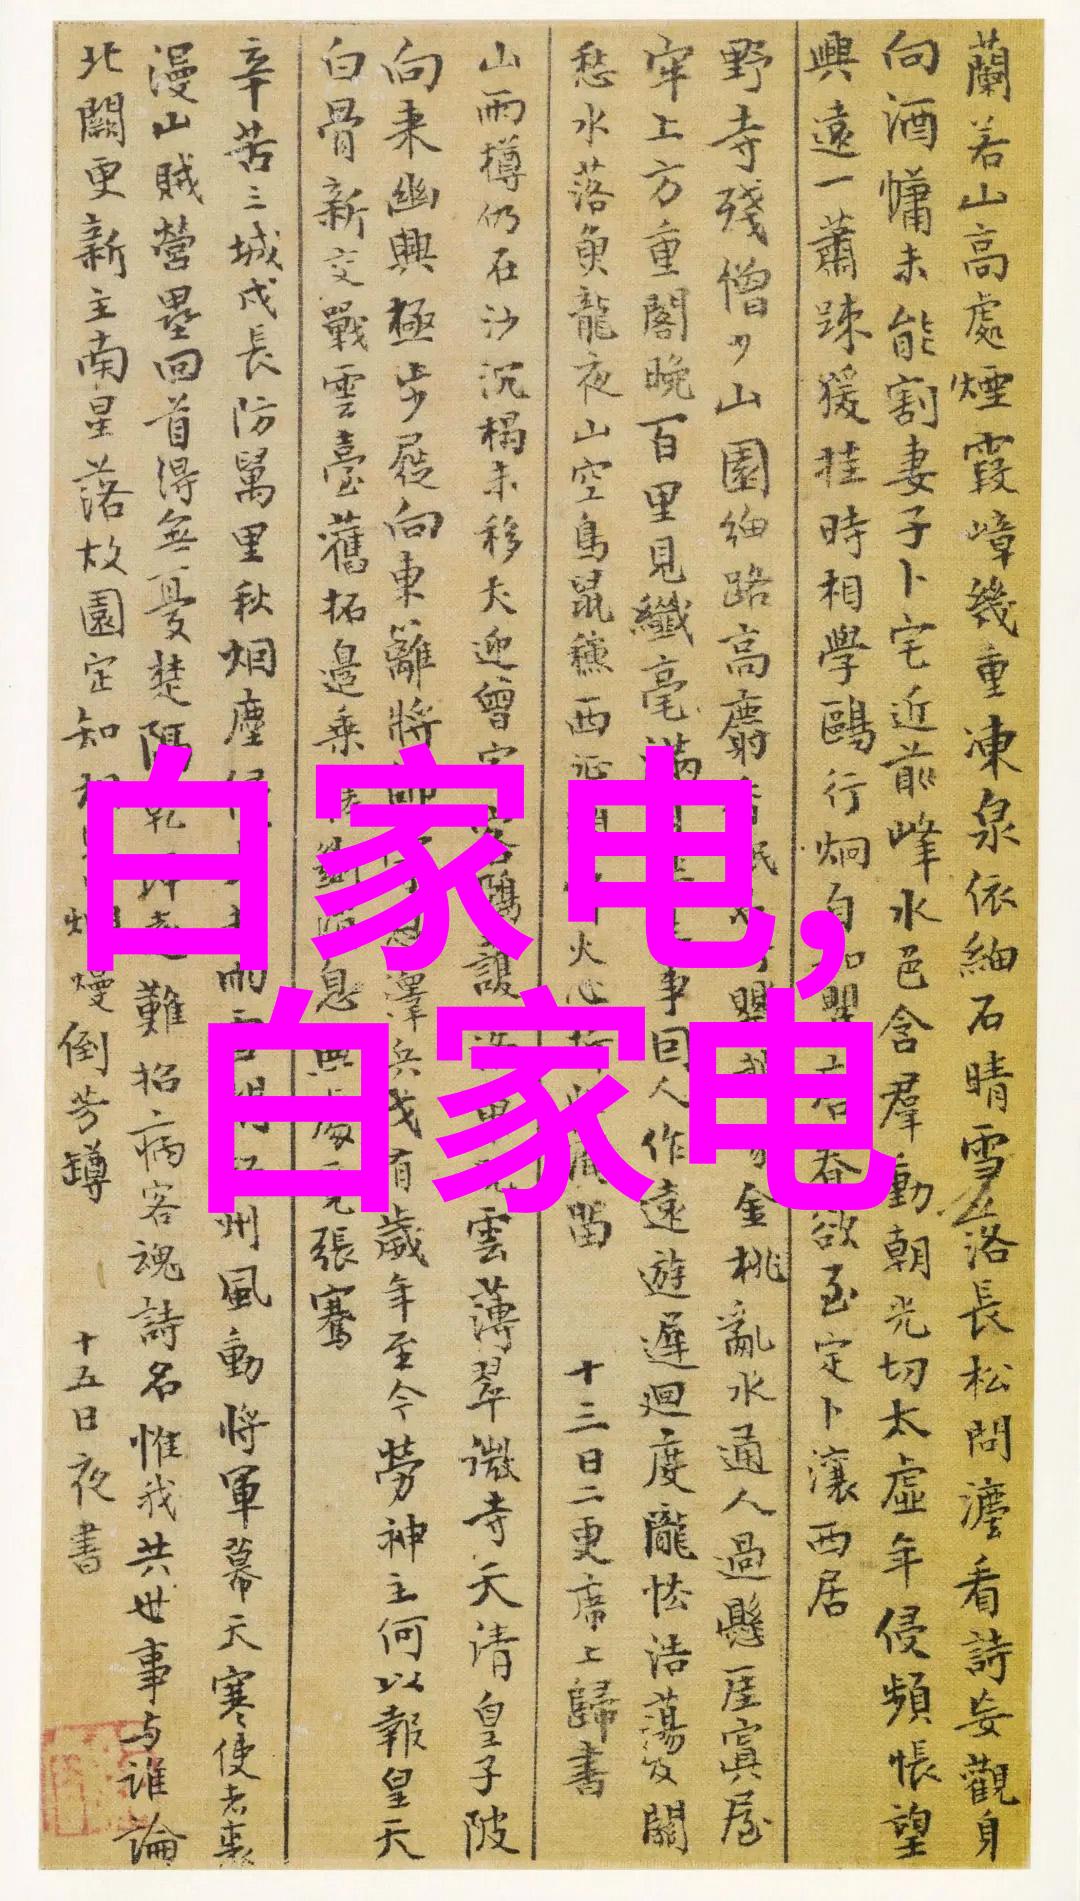 蘭若山高處煙霞嶂幾重凍泉依細石晴雪落長松問濃看詩妄觀身
向酒慵未能割妻子卜宅近前峰水色含羣動朝光切太虛年侵頻悵望
興遠一蕭踈猨挂時相學鷗行炯自如瞿唐春欲至定卜瀼西居
野寺殘僧少山園細路高麝香眠 金桃亂水通人過懸厓寘屋
牢上方重閣晚百里見纖毫滿 事回人作遠遊遲迴度隴怯浩蕩及關
愁水落魚龍夜山空鳥鼠穐西 火心折此淹留 十三日二更席上歸書
山雨樽仍在沙沉榻未移犬迎曾宿客鴉護 雲薄翠微寺天清皇子陂
向来幽興極步屐向東籬將帥 恩澤兵戈有歲年至今勞神主何以報皇天
白骨新交戰雲臺舊拓邊乘 斷消息無處覓張騫
辛苦三城戍長防萬里秋烟塵侵 雨雪 州風動將軍幕天寒使者裘
漫山賊營壘回首得無憂楚隔乾坤遠難招病客魂詩名惟我共世事与誰論
北闕更新主南星落故園定知相見 爛熳倒芳罇 十五日夜書
白家电,
白家电